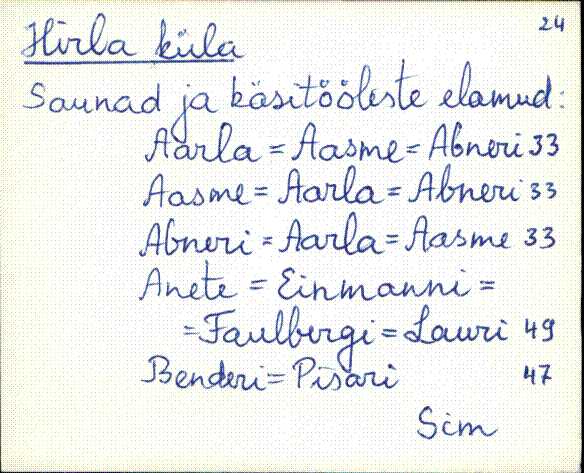 24
Hirla küla
Saunad ja käsitööliste elamud:
Aarla = Aasme = Abneri 33
Aasme = Aarla = Abneri 33
Abneri = Aarla = Aasme 33
Anete = Einmanni =
= Faulbergi = Lauri 49
Benderi = Pisari 47
Sim